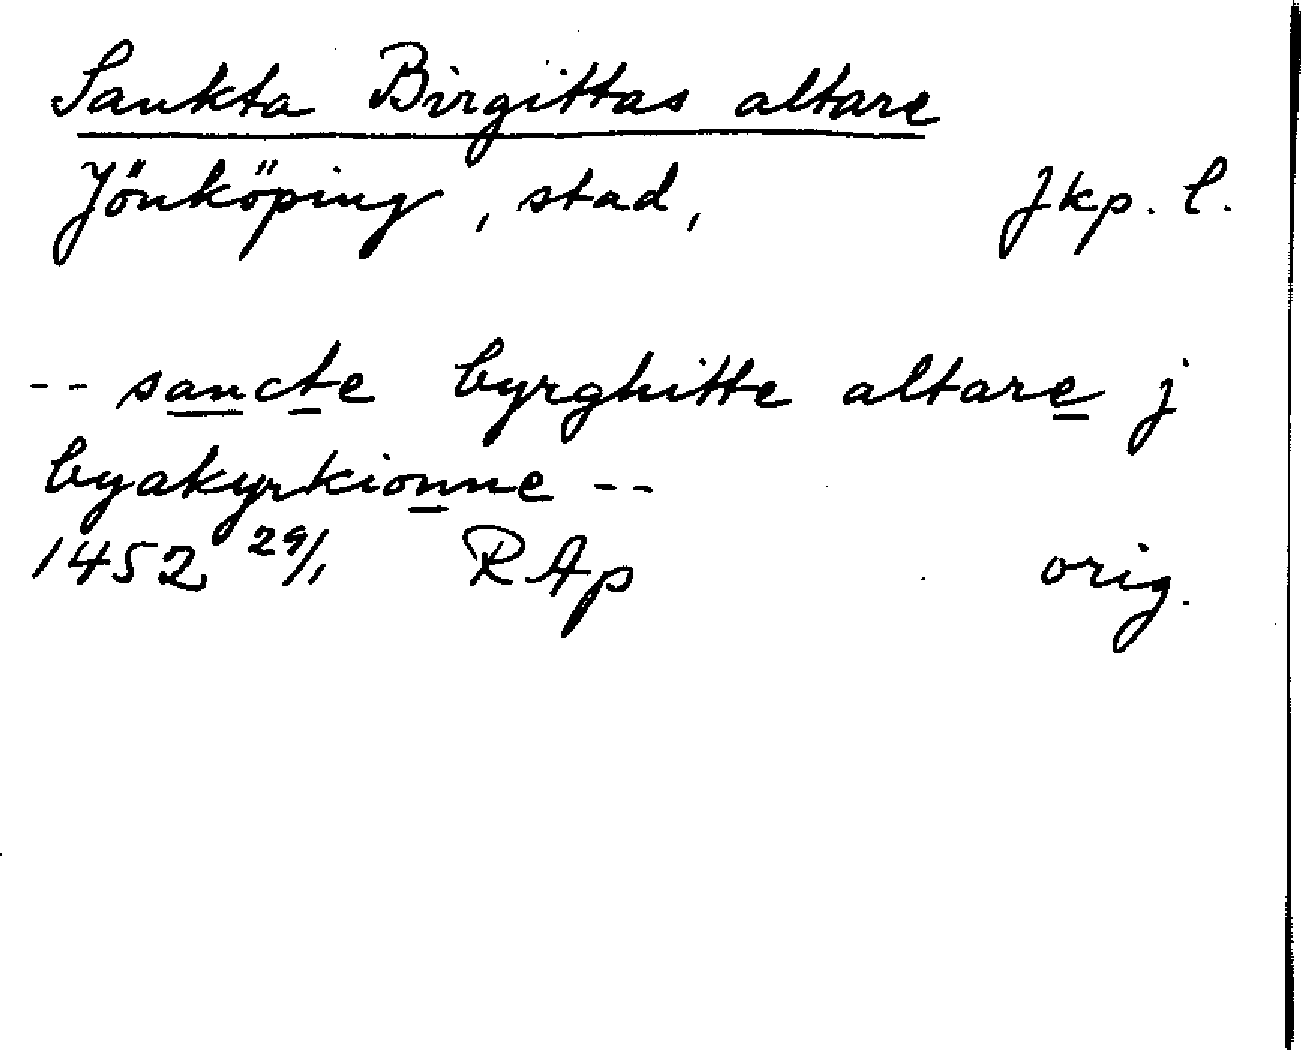 Sankta Birgittas altare
Jönköping, stad, Jkp. l.
-- sancte byrghitte altare j
byakyrkionne --
1452 29/1 RAp orig.